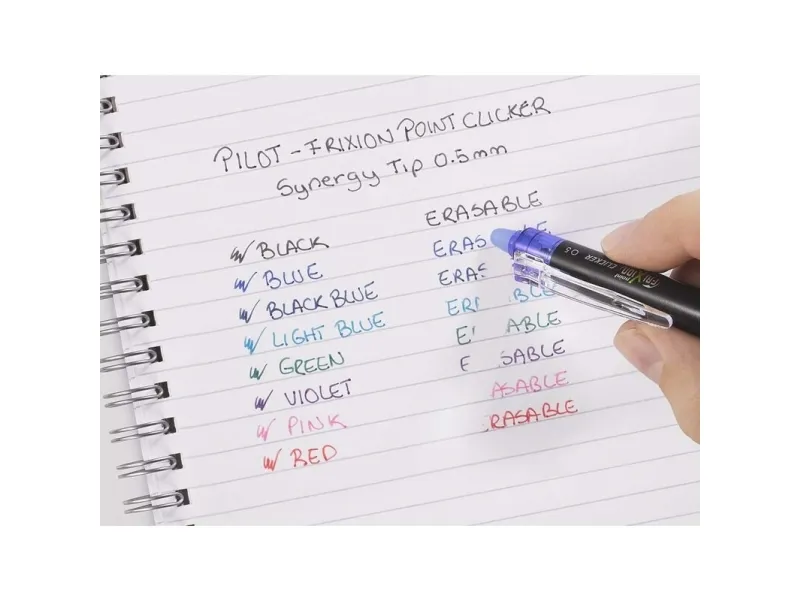 PILOT - FRIXION POINT CLICKER
Synergy Tip 0.5mm
ERASABLE
BLACK
ERAS LE
BLUE
ERAS
BLACK BLUE
ERI BLE
LIGHT BLUE
E ABLE
GREEN
E SABLE
VIOLET
ASABLE
PINK
RASABLE
RED
FRIXION point CLICKER 0.5